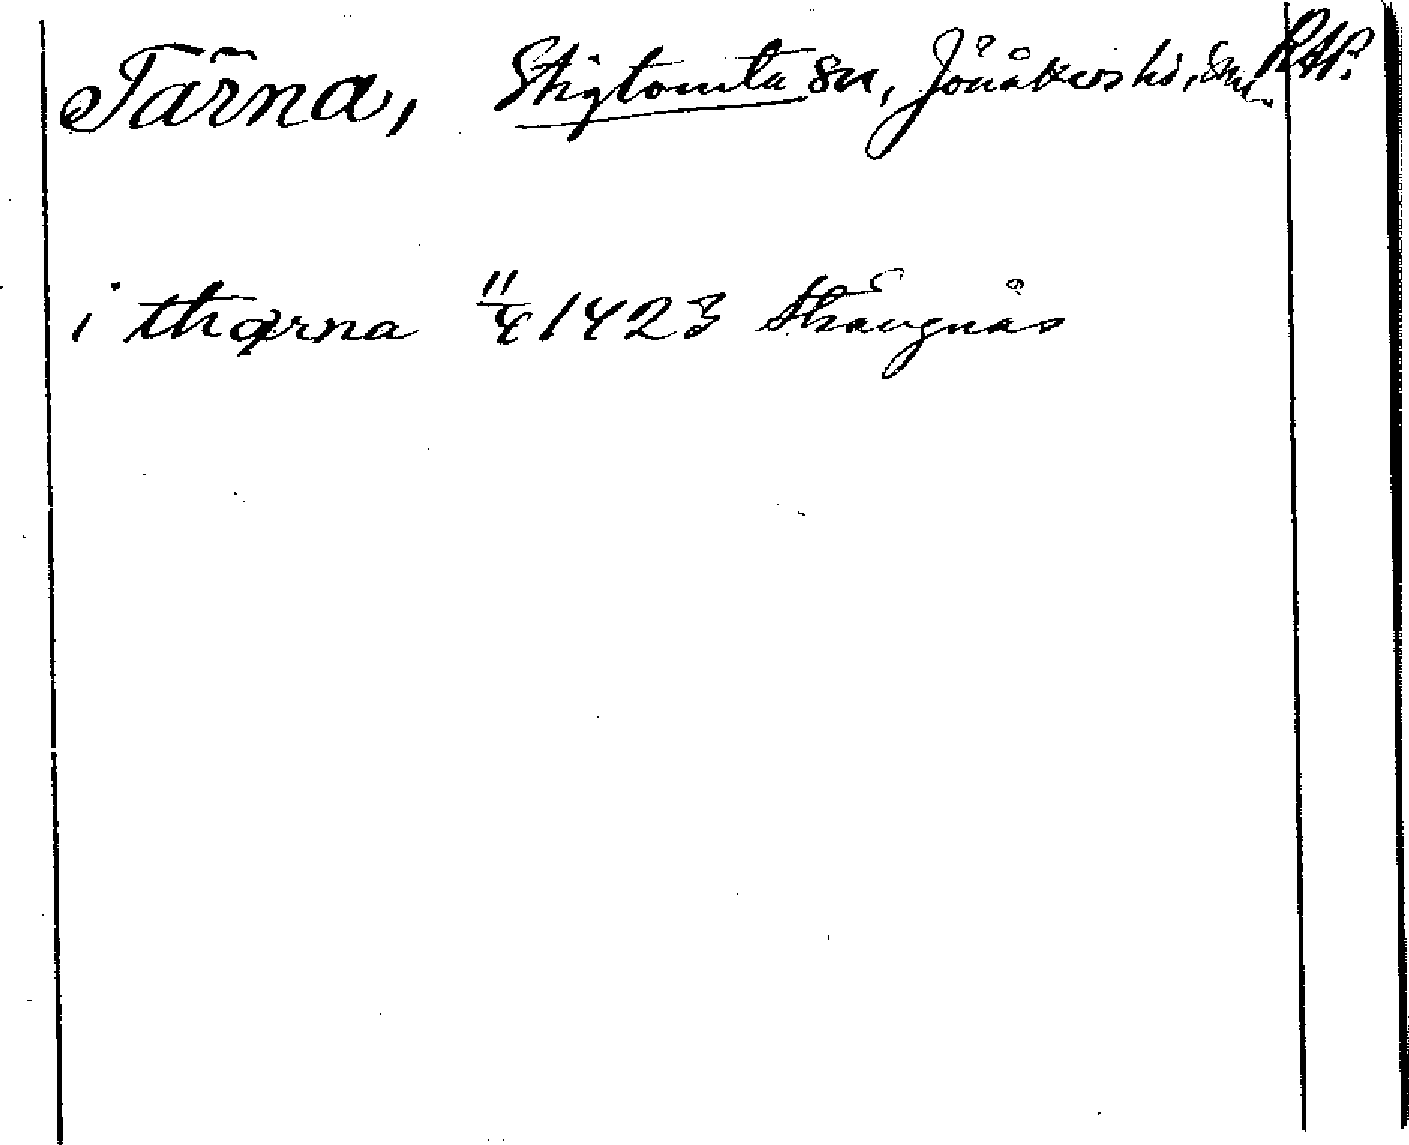 Tärna, Stigtomta sn, Jönåkers hd, Sml. RAP.
i thærna 11/4 1423 Strängnäs